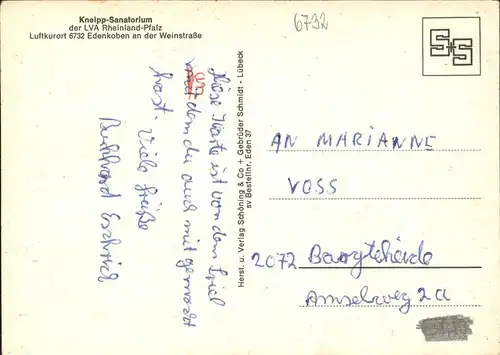 Kneipp-Sanatorium
der LVA Rheinland-Pfalz
Luftkurort 6732 Edenkoben an der Weinstraße
6732
S+S
Diese Karte ist von dem Spiel
an
mit dem du auch mit gemacht
hast. Viele Grüße
Burkhard
Herst. u. Verlag Schöning & Co + Gebrüder Schmidt - Lübeck
sv Bestellnr. Eden 37
AN MARIANNE
VOSS
2072 Bargteheide
Amselweg 2a